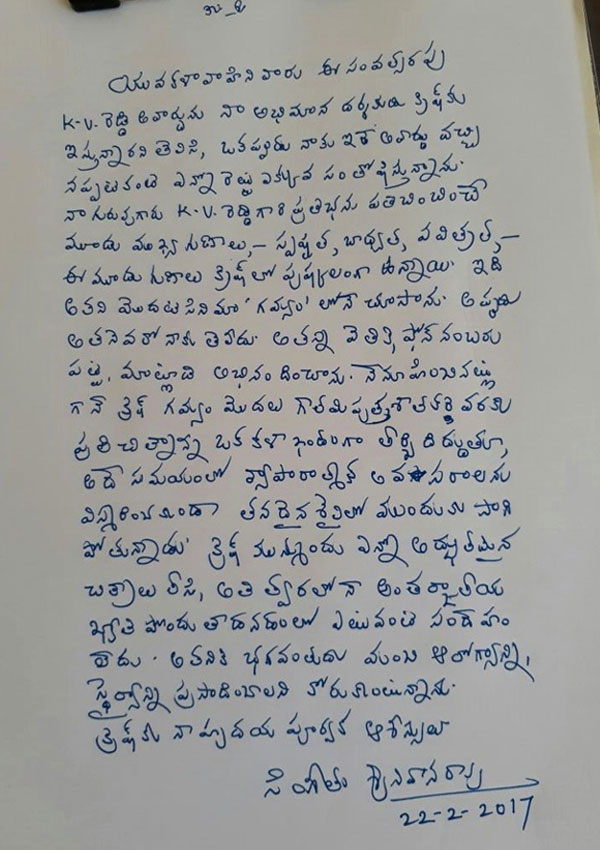 యువకళావాహిని వారు ఈ సంవత్సరపు
K.V. రెడ్డి అవార్డును నా అభిమాన దర్శకుడు క్రిష్‌కు
ఇస్తున్నారని తెలిసి, ఒకప్పుడు నాకు ఇదే అవార్డు వచ్చి
నప్పటికంటె ఎన్నో రెట్లు ఎక్కువ సంతోషిస్తున్నాను.
నా గురువుగారు K.V. రెడ్డిగారి ప్రతిభను ప్రతిబింబించే
మూడు ముఖ్య గుణాలు, – స్పష్టత, బాధ్యత, పవిత్రత, –
ఈ మూడు గుణాలు క్రిష్ లో పుష్కలంగా ఉన్నాయి. ఇది
అతని మొదటి సినిమా 'గమ్యం' లోనే చూసాను. అప్పుడు
అతనెవరో నాకు తెలీదు. అతన్ని వెతికి, ఫోన్ నంబరు
పట్టి, మాట్లాడి అభినందించాను. నేనూహించినట్లు
గానే క్రిష్ గమ్యం మొదలు గౌతమిపుత్ర శాతకర్ణి వరకు
ప్రతి చిత్రాన్నీ ఒక కళా ఖండంగా తీర్చి దిద్దుతూ,
అదే సమయంలో వ్యాపారాత్మక అవసరాలను
విస్మరించకుండా తనదైన శైలిలో ముందుకు సాగి
పోతున్నాడు. క్రిష్ మున్ముందు ఎన్నో అద్భుతమైన
చిత్రాలు తీసి, అతి త్వరలోనే అంతర్జాతీయ
ఖ్యాతి పొందుతాడనడంలో ఎటువంటి సందేహం
లేదు. అతనికి భగవంతుడు మంచి ఆరోగ్యాన్ని,
స్థైర్యాన్ని ప్రసాదించాలని కోరుకుంటున్నాను.
క్రిష్ కు నా హృదయ పూర్వక ఆశీస్సులు
సింగీతం శ్రీనివాసరావు
22-2-2017